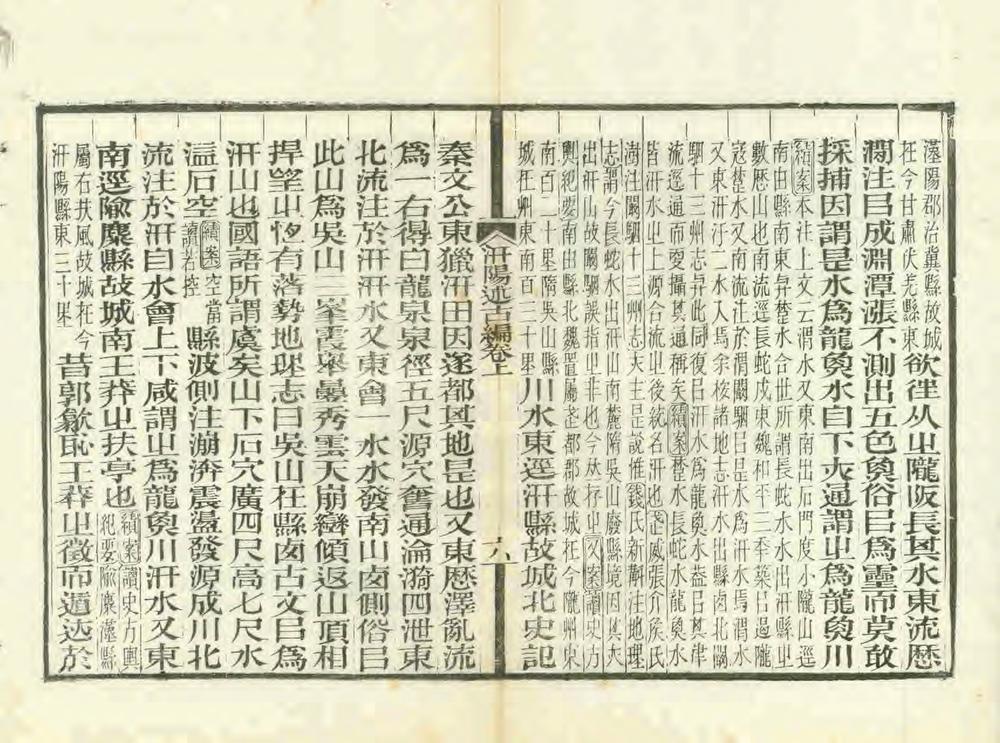 漢陽郡治冀縣故城
在今甘肅伏羌縣東
欲往从之隴阪長其水東流歷
澗注㠯成淵潭漲不測出五色魚俗㠯為靈而莫敢
採捕因謂是水為龍魚水自下亦通謂之為龍魚川
續案本注上文云渭水又東南出石門度小隴山逕
南由縣南東與楚水合世所謂長蛇水水出汧縣之
數歷山也南流逕長蛇戍東魏和平三年築㠯遏隴
寇楚水又南流注於渭闞駰㠯是水為汧水焉渭水
又東汧汙二水入焉余按諸地志汧水出縣西北闞
駰十三州志與此同復㠯汧水為龍魚水蓋㠯其津
流逕通而更攝其通稱矣續案楚水長蛇水龍魚水
皆汧水之上源合流之後統名汧也武威張介矦氏
澍注闞駰十三州志夫主是說惟錢氏新斠注地理
志謂今長蛇水出汧山南麓隋吳山廢縣境因其大
出汧山故闞駰誤指之非也今並存之又案讀史方
輿紀要南由縣北魏置屬武都郡故城在今隴州東
南百二十里隋吳山縣
城在州東南百二十里
川水東逕汧縣故城北史記
汧陽述古編卷上
六
秦文公東獵汧田因遂都其地是也又東歷澤亂流
為一右得白龍泉泉徑五尺源穴奮通淪漪四泄東
北流注於汧汧水又東會一水水發南山西側俗㠯
此山為吳山三峯霞舉曡秀雲天崩巒傾返山頂相
捍望之恆有落勢地理志曰吳山在縣西古文㠯為
汧山也國語所謂虞矣山下石穴廣四尺高七尺水
溢石空
續案空當
讀若控
縣波側注漰渀震盪發源成川北
流注於汧自水會上下咸謂之為龍魚川汧水又東
南逕隃麋縣故城南王莽之扶亭也
續案讀史方輿
紀要隃麋漢縣
屬右扶風故城在今
汧陽縣東三十里
昔郭歙恥王莽之徵而遁迹於